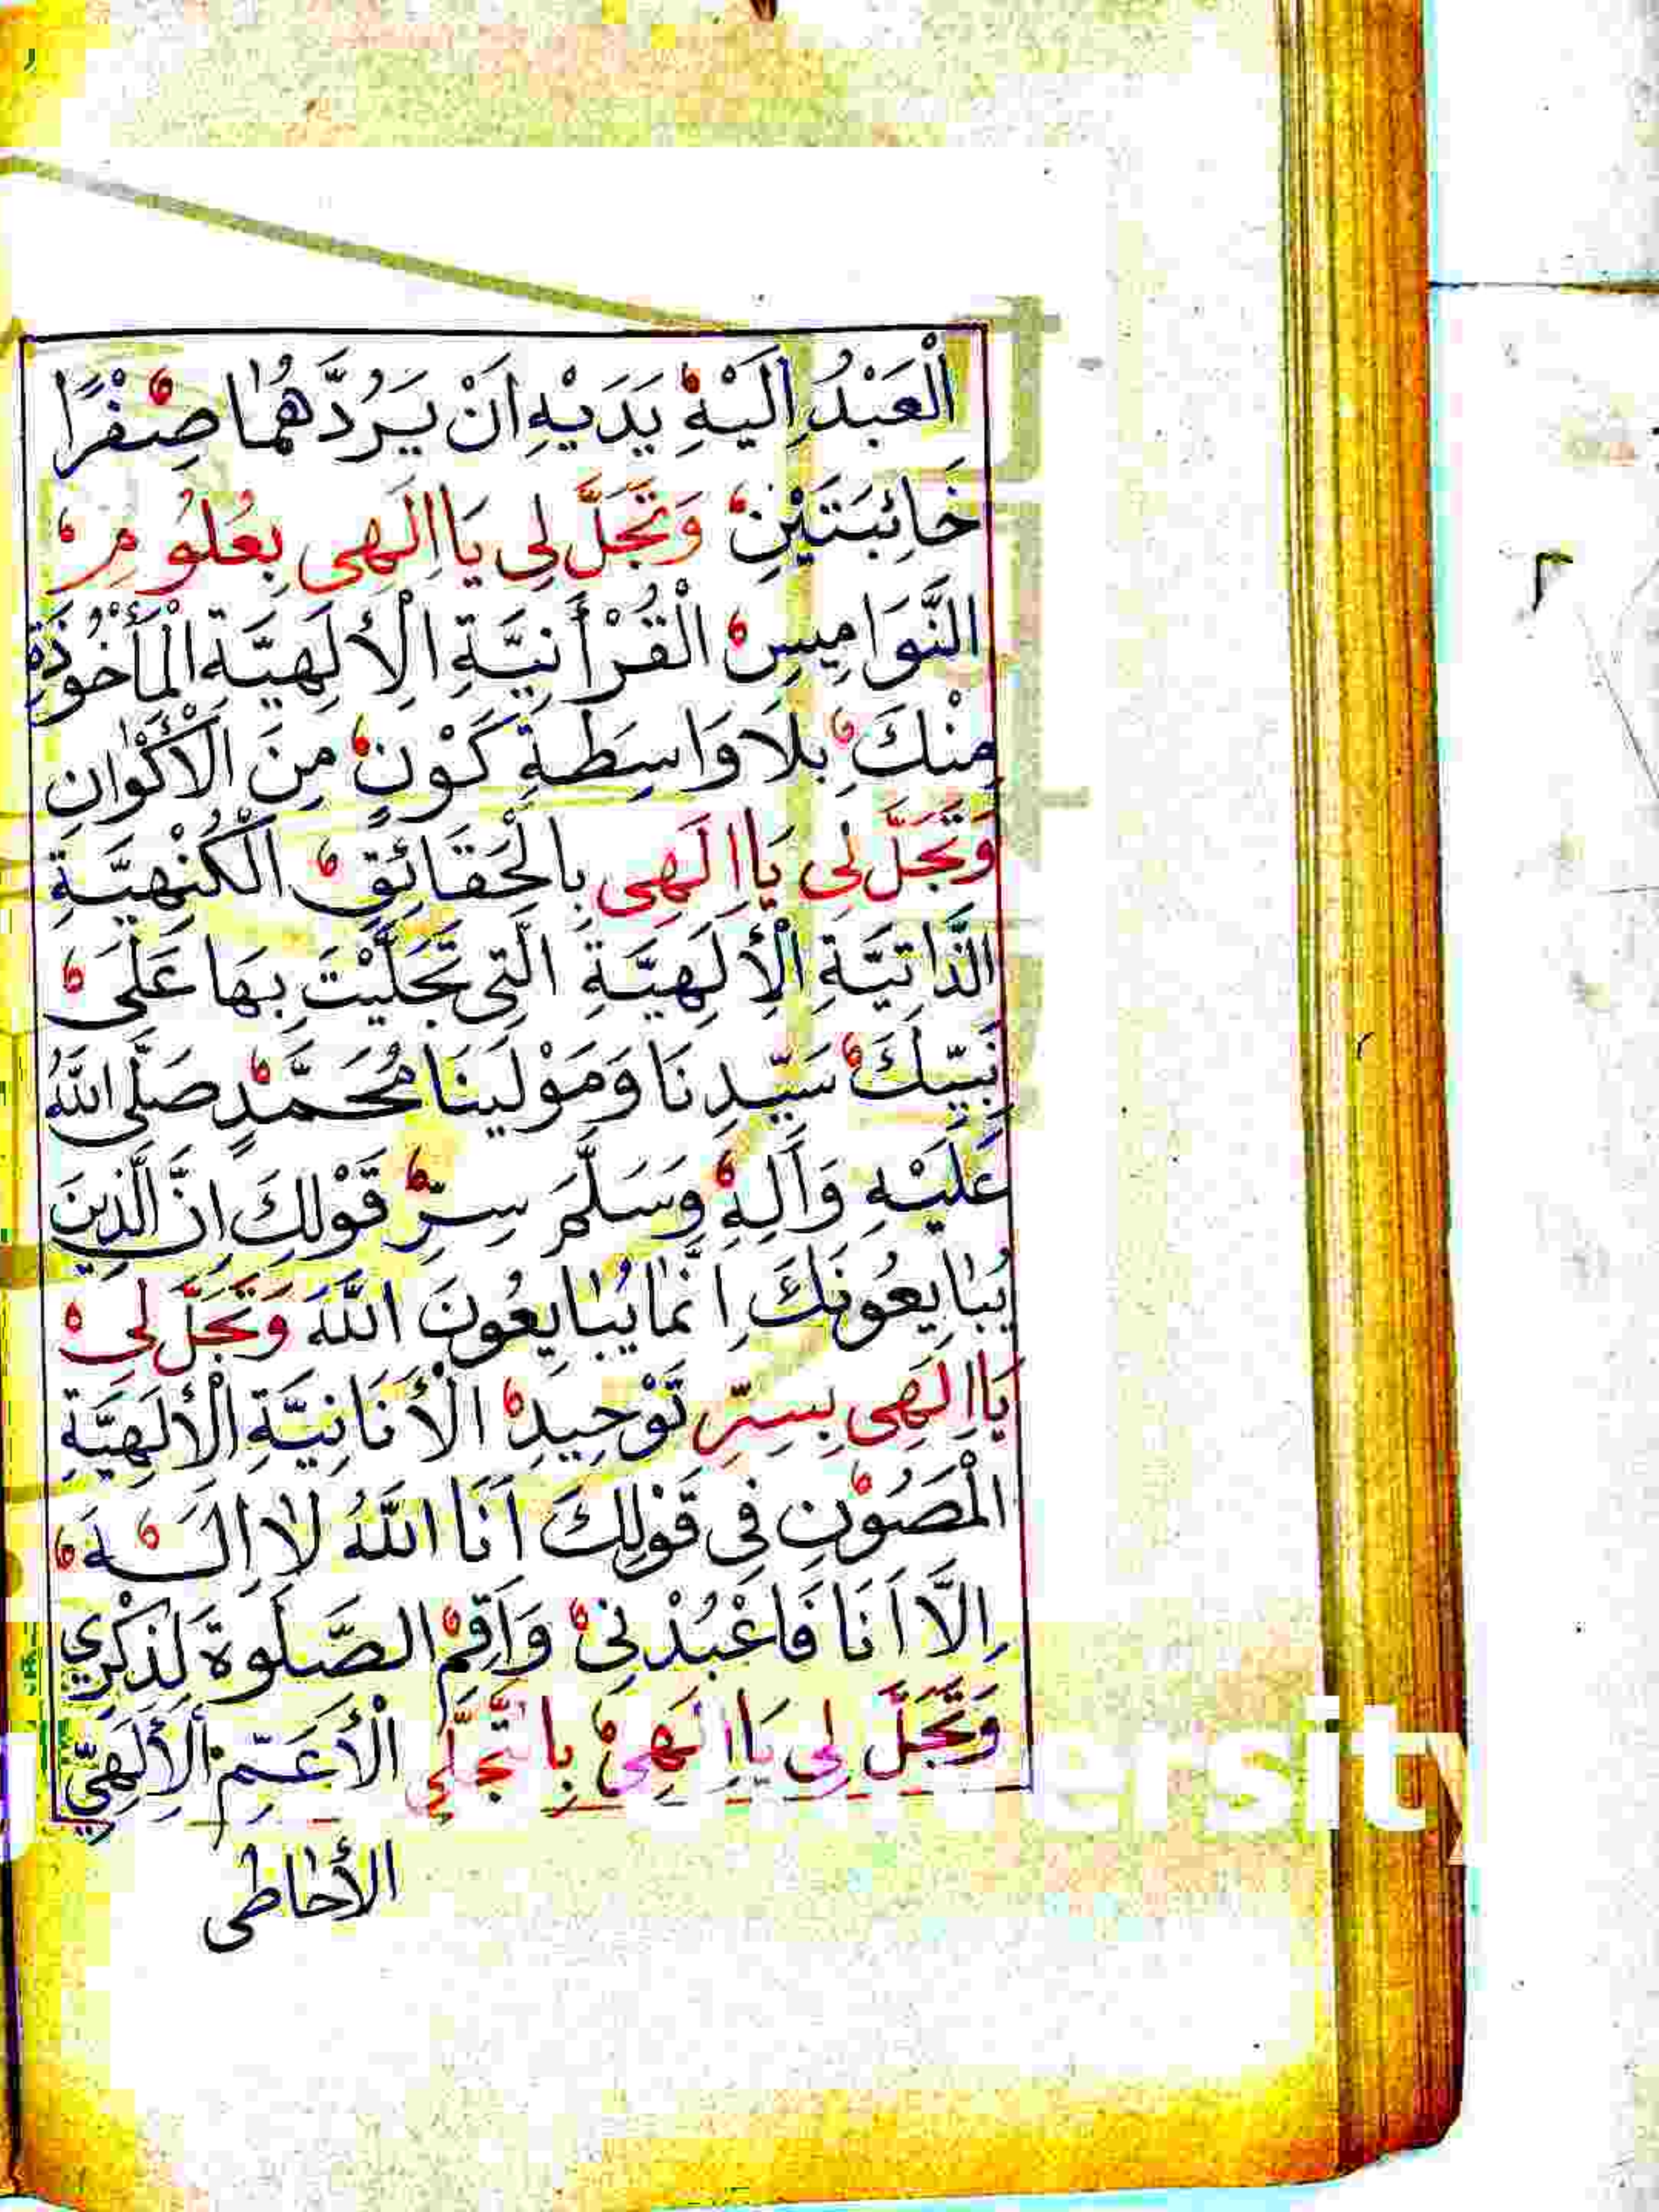 الْعَبْدُ اِلَيْهِ يَدَيْهِ اَنْ يَرُدَّهُمَا صِفْرًا
خَائِبَتَيْنِ وَتَجَلَّ لِي يَا اِلَهِي بِعُلُومِ
النَّوَامِيسِ الْقُرْأَنِيَّةِ الْاِلَهِيَّةِ الْمَأْخُوذَةِ
مِنْكَ بِلَا وَاسِطَةِ كَوْنٍ مِنَ الْاَكْوَانِ
وَتَجَلَّ لِي يَا اِلَهِي بِالْحَقَائِقِ الْكُنْهِيَّةِ
الذَّاتِيَّةِ الْاِلَهِيَّةِ الَّتِي تَجَلَّيْتَ بِهَا عَلَى
نَبِيِّكَ سَيِّدِنَا وَمَوْلَينَا مُحَمَّدٍ صَلَّى اللَّهُ
عَلَيْهِ وَاَلِهِ وَسَلَّمَ سِرِّ قَوْلِكَ اِنَّ الَّذِينَ
يُبَايِعُونَكَ اِنَّمَا يُبَايِعُونَ اللَّهَ وَتَجَلَّ لِي
يَا اِلَهِي بِسِرِّ تَوْحِيدِ الْأَنَانِيَّةِ الْاِلَهِيَّةِ
الْمَصُونِ فِي قَوْلِكَ اَنَا اللَّهُ لَا اِلَهَ
اِلَّا اَنَا فَاعْبُدْنِي وَاَقِمِ الصَّلَوةَ لِذِكْرِي
وَتَجَلَّ لِي يَا اِلَهِي بِالتَّجَلِّي الْأَعَمِّ الْاِلَهِيِّ
الأحاطى
ersity